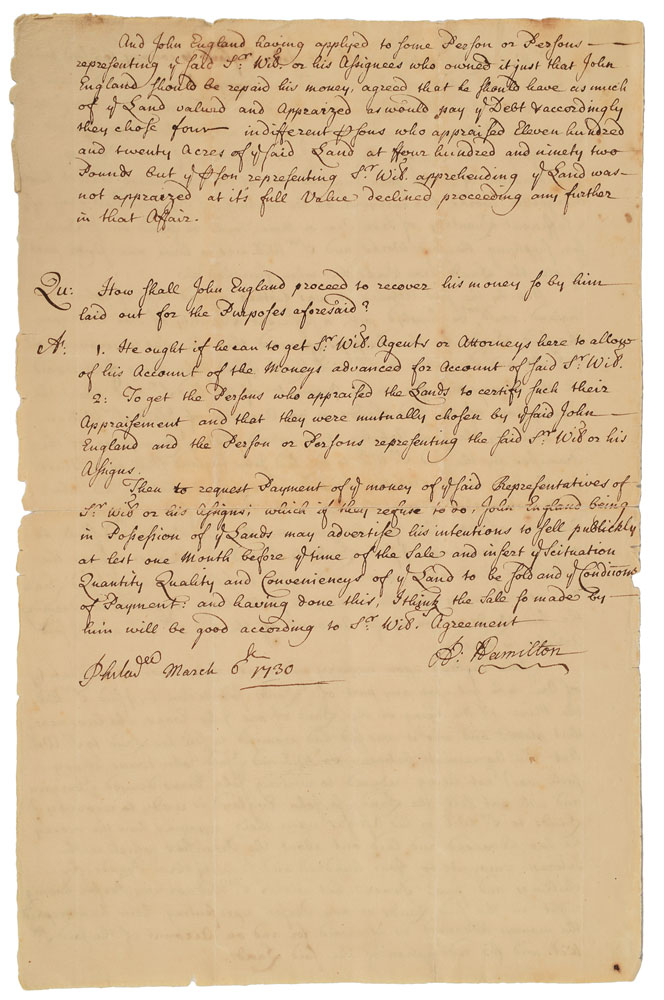 And John England having applyed to some Person or Persons —
representing yͤ said Sʳ. Wᵐ. or his Assignees who owned it just that John
England should be repaid his money, agreed that he should have as much
of yͤ Land valued and Appraized as would pay yͤ Debt & accordingly
they chose four indifferent Psons who appraised Eleven hundred
and twenty Acres of yͤ said Land at ffour hundred and ninety two
Pounds but yͤ Pson representing Sʳ. Wᵐ. apprehending yͤ Land was —
not appraized at it's full Value declined proceeding any further
in that Affair.
Qu: How shall John England proceed to recover his money so by him
laid out for the Purposes aforesaid?
A: 1. He ought if he can to get Sʳ. Wᵐ. Agents or Attorneys here to allow
of his Account of the Moneys advanced for Account of said Sʳ. Wᵐ.
2: To get the Persons who appraised the Lands to certify such their
Appraisement and that they were mutually chosen by yͤ said John —
England and the Person or Persons representing the said Sʳ. Wᵐ or his
Assigns.
Then to request Payment of yͤ money of yͤ said Representatives of
Sʳ. Wᵐ or his Assigns; which if they refuse to do, John England being
in Possession of yͤ Lands may advertise his intentions to sell publickly
at lest one Month before yͤ time of the Sale and insert yͤ Scituation
Quantity Quality and Conveniencys of yͤ Land to be sold and yͤ Conditions
of Payment: and having done this, I think the Sale so made by —
him will be good according to Sʳ. Wᵐ. Agreement
Philadᵉˡ March 6ᵗʰ 1730 A. Hamilton